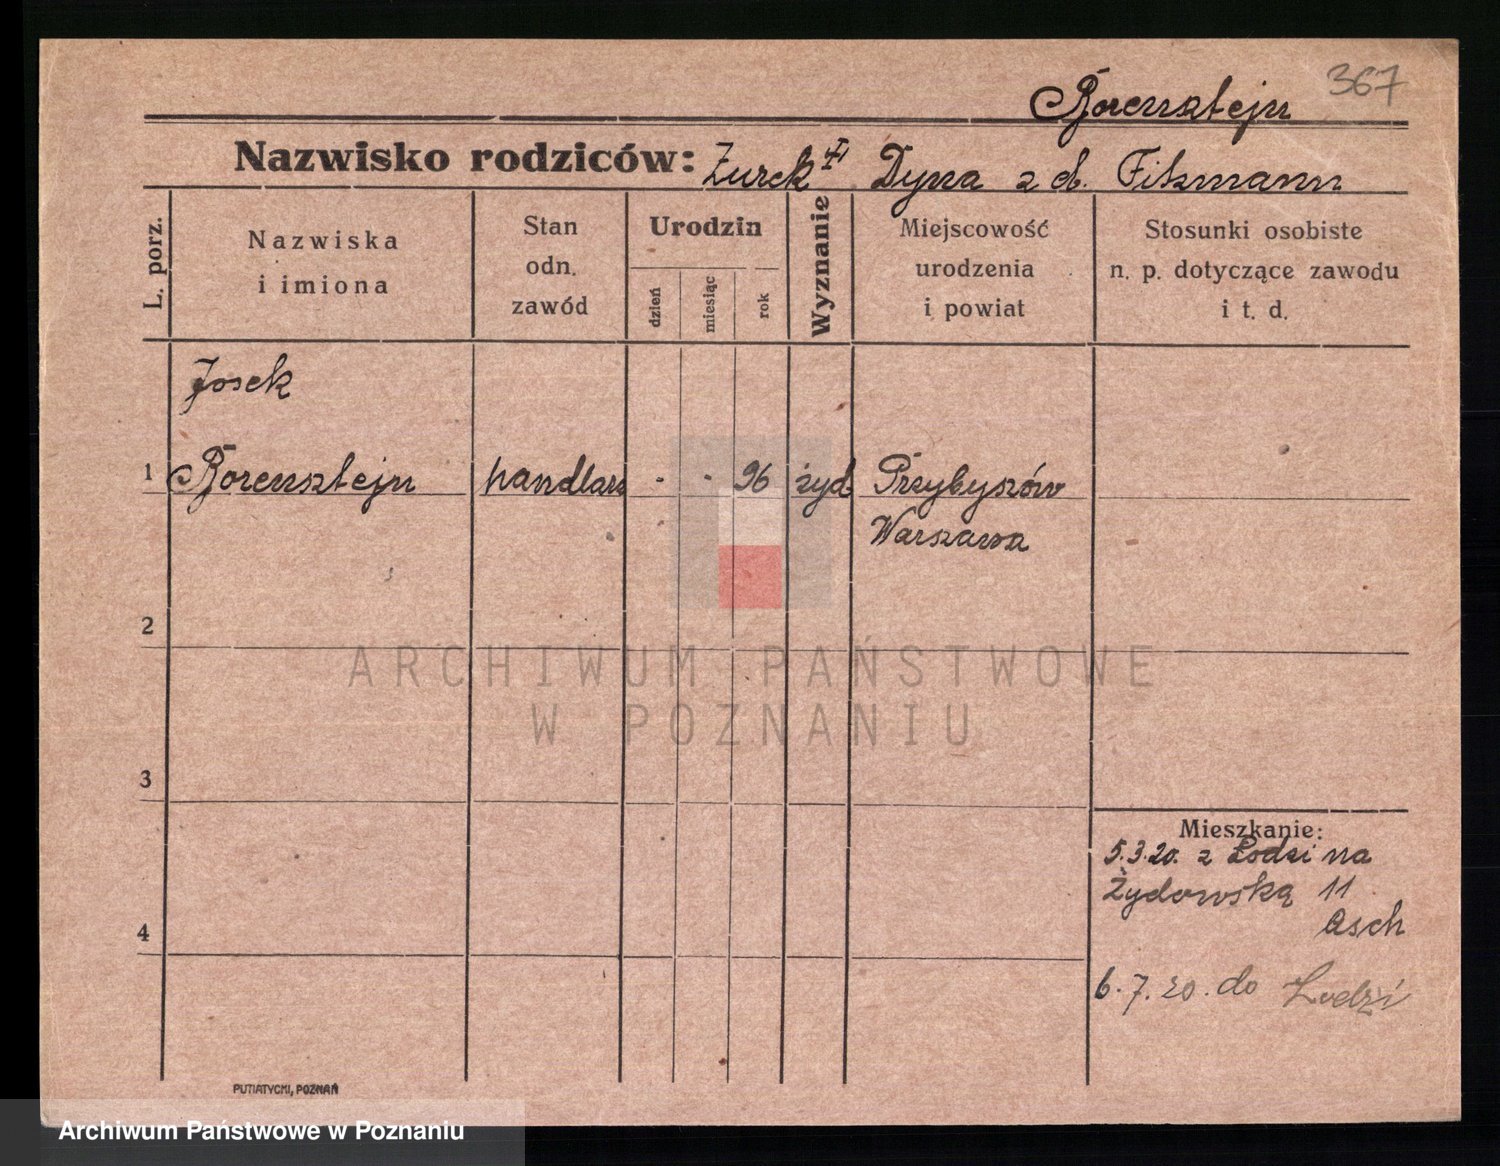 367
Borensztejn
Nazwisko rodziców: Żurek Dyna z d. Fiksmann
L. porz.
Nazwiska
i imiona
Stan
odn.
zawód
Urodzin
dzień
miesiąc
rok
Wyznanie
Miejscowość
urodzenia
i powiat
Stosunki osobiste
n. p. dotyczące zawodu
i t. d.
Josek
1 Borensztejn handlarz - - 96 żyd Przybyszów
Warszawa
2
3
4
Mieszkanie:
5.3.20. z Łodzi na
Żydowską 11
Asch
6.7.20. do Łodzi
PUTIATYCKI, POZNAŃ
ARCHIWUM PAŃSTWOWE
W POZNANIU
Archiwum Państwowe w Poznaniu